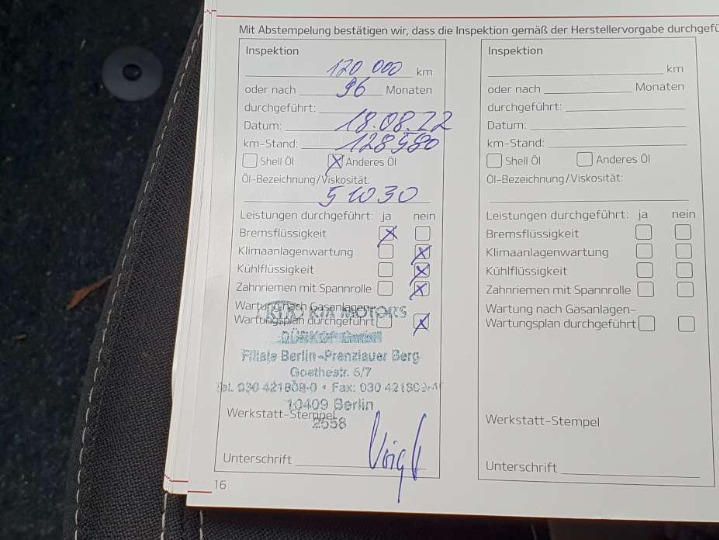 Mit Abstempelung bestätigen wir, dass die Inspektion gemäß der Herstellervorgabe durchgefü
Inspektion
120 000 km
oder nach 96 Monaten
durchgeführt:
Datum: 18.08.22
km-Stand: 128980
Shell Öl Anderes Öl
Öl-Bezeichnung/Viskosität:
5W30
Leistungen durchgeführt: ja nein
Bremsflüssigkeit
Klimaanlagenwartung
Kühlflüssigkeit
Zahnriemen mit Spannrolle
Wartung nach Gasanlagen-
Wartungsplan durchgeführt
KIA KIA MOTORS
DÜRKOP GmbH
Filiale Berlin-Prenzlauer Berg
Goethestr. 5/7
Tel. 030 421808-0 • Fax: 030
10409 Berlin
Werkstatt-Stempel
2558
Unterschrift Voigt
16
Inspektion
km
oder nach Monaten
durchgeführt:
Datum:
km-Stand:
Shell Öl Anderes Öl
Öl-Bezeichnung/Viskosität:
Leistungen durchgeführt: ja nein
Bremsflüssigkeit
Klimaanlagenwartung
Kühlflüssigkeit
Zahnriemen mit Spannrolle
Wartung nach Gasanlagen-
Wartungsplan durchgeführt
Werkstatt-Stempel
Unterschrift